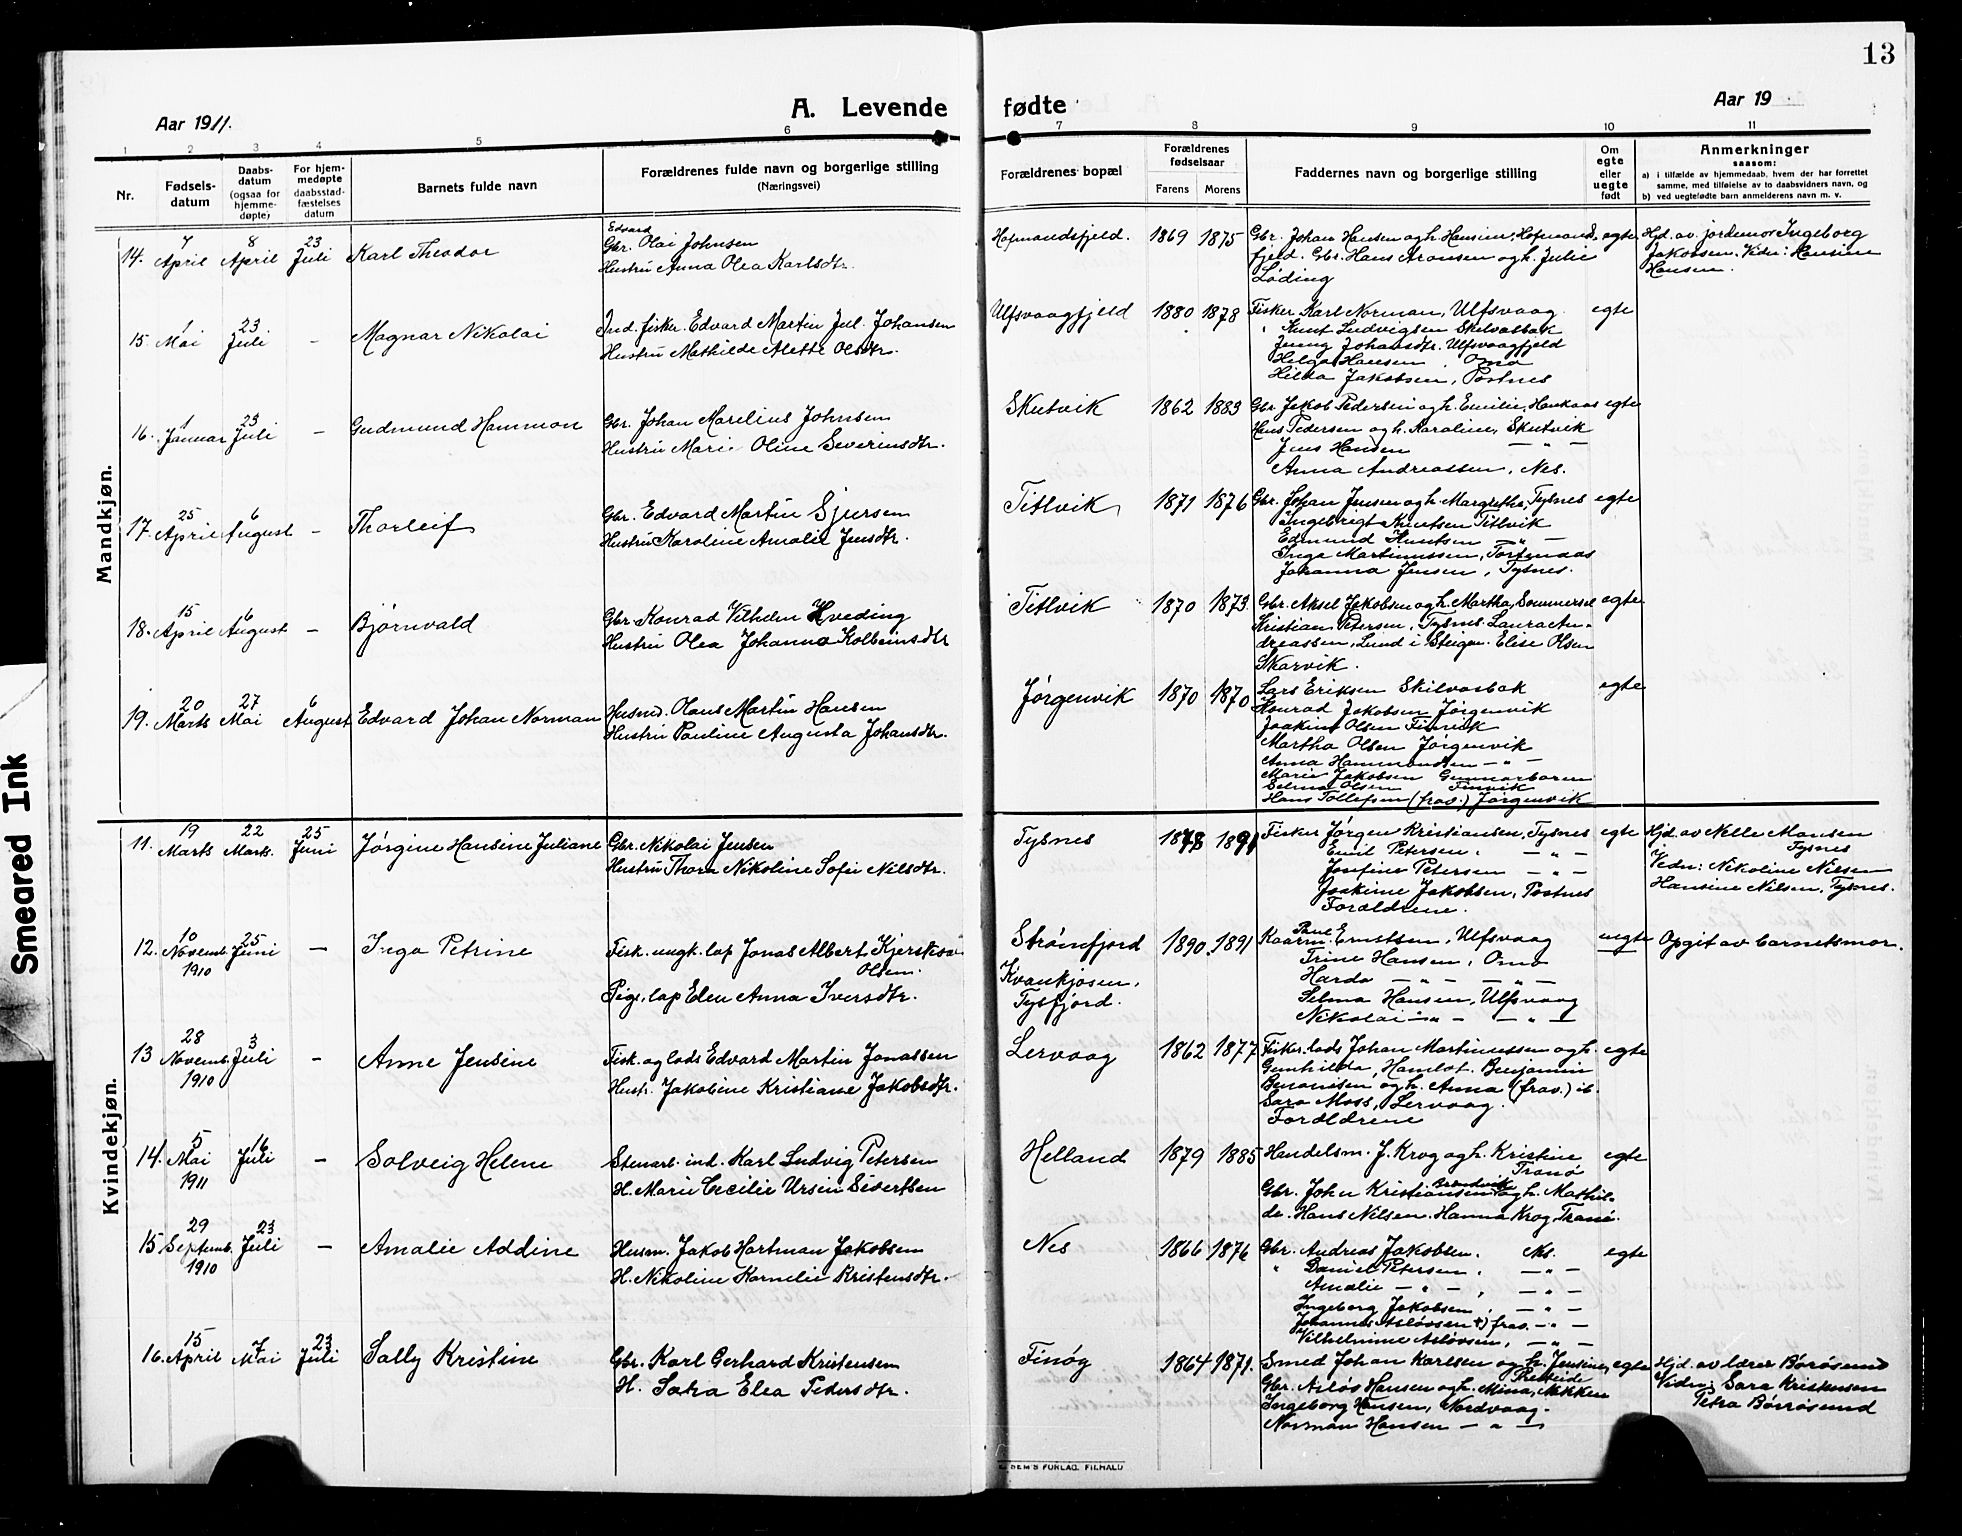 13
A. Levende fødte
Aar 1911.
Aar 19
1 2 3 4 5 6 7 8 9 10 11
Nr.
Fødsels-
datum
Daabs-
datum
(ogsaa for
hjemme-
døpte)
For hjem-
medøpte
daabsstad-
fæstelses
datum
Barnets fulde navn
Forældrenes fulde navn og borgerlige stilling
(Næringsvei)
Forældrenes bopæl
Forældrenes
fødselsaar
Farens Morens
Faddernes navn og borgerlige stilling
Om
egte
eller
uegte
født
Anmerkninger
saasom:
a) i tilfælde av hjemmedaab, hvem der har forrettet
samme, med tilføielse av to daabsvidners navn, og
b) ved uegtefødte barn anmelderens navn m. v.
Mandkjøn.
14. 7 April 8 April 23 Juli Karl Theodor
Edvard
Gbr. Olai Johnsen
Hustru Anna Olea Karlsdtr.
Hofmandsfjeld. 1869 1875
Gbr. Johan Hansen og h. Hansine, Hofmands
fjeld. Gbr. Hans Aronsen og h. Julie
Løding
egte
Hjd. av jordemor Ingeborg
Jakobsen. Vidn: Hansine
Hansen.
15. 1 Mai 23 Juli - Magnar Nikolai
Ind. fisker. Edvard Martin Jul. Johansen
Hustru Mathilde Alette Olsdtr.
Ulfsvaagfjeld 1880 1878
Fisker Karl Norman, Ulfsvaag
" Knut Ludvigsen Skilvasbak
Jenny Johansdtr. Ulfsvaagfjeld
Helga Hansen, Omo
Hilda Jakobsen, Postnes
egte
16. 1 Januar 23 Juli - Gudmund Hammon
Gbr. Johan Marelius Johnsen
Hustru Mari Oline Severinsdtr.
Skutvik 1862 1883
Gbr. Jakob Pedersen og h. Emilie, Haukaas
Hans Pedersen og h. Karoline, Skutvik
Jens Hansen - " -
Anna Andreassen, Nes.
egte
17. 25 April 6 August - Thorleif
Gbr. Edvard Martin Sjursen
Hustru Karoline Amalie Jensdtr.
Titlvik 1871 1876
Gbr. Johan Jensen og h. Margrethe, Tysnes
Ingebrigt Knutsen Titlvik
Edmund Knutsen - " -
Inga Martinussen, Tortenaas
Johanna Jensen, Tysnes.
egte
18. 15 April 6 August - Bjørnvald
Gbr. Konrad Vilhelm Hveding
Hustru Olea Johanna Kolbeinsdtr
Titlvik 1870 1873.
Gbr. Aksel Jakobsen og h. Martha, Sommersel
Kristian Petersen, Tysnes. Laura An-
dreassen, Lund i Steigen. Elise Olsen
Skarvik.
egte
19. 20 Marts 27 Mai 6 August Edvard Johan Norman
Husmd. Olaus Martin Hansen
Hustru Pauline Augusta Johansdtr.
Jørgenvik 1870 1870
Lars Eriksen Skilvasbak
Konrad Jakobsen Jørgenvik
Joakim Olsen Finvik
Martha Olsen Jørgenvik
Anna Hammondsen - " -
Marie Jakobsen Gunnarbaren
Selma Olsen Finvik
Hans Tollefsen (frav.) Jørgenvik
egte
Kvindekjøn.
11. 19 Marts 22 Marts. 25 Juni Jørgine Hansine Juliane
Gbr. Nikolai Jensen
Hustru Thora Nikoline Sofie Nilsdtr.
Tysnes 1878 1891
Fisker Jørgen Kristiansen, Tysnes
Emil Petersen. - " -
Josefine Petersen - " -
Joakime Jakobsen, Postnes
Forældrene.
egte
Hjd. av Nelle Mansen
Tysnes
Vidn: Nikoline Nilsen
Hansine Nilsen, Tysnes.
12. 10 Novemb. 1910 25 Juni - Inga Petrine
Fisk. ungk. lap Jonas Albert Kjerskesa
Olsen.
Pige, lap Elen Anna Iversdtr.
Strømfjord
Kvankjosen,
Tysfjord.
1890. 1891
Kaarm. Ernstsen, Ulfsvaag
Trine Hansen, Omo
Harda - " - - " -
Selma Hansen, Ulfsvaag
Nikolai - " - - " -
uegte
Opgit av barnetsmor.
13 28 Novemb. 1910 3 Juli - Anne Jensine
Fisk. og lods Edvard Martin Jonassen
Hustr. Jakobine Kristiane Jakobsdtr.
Lervaag 1862 1877
Fisker. lods Johan Martinussen og h.
Gunhilda, Hamlot. Benjamin
Benonisen og h. Anna (frav.) ib.
Sara Moss, Lervaag.
Forældrene
egte
14. 5 Mai 1911 16 Juli - Solveig Helene
Stenarb. ind. Karl Ludvig Petersen
H. Marie Cecilie Ursin Sivertsen
Helland 1879 1885
Handelsm. J. Krog og h. Kristine
Tranø
Gbr. John Kristiansen Brendvik og h. Mathil-
de. Hans Nilsen. Hanna Krog Tranø.
egte
15 29 Septemb. 1910 23 Juli - Amalie Addine
Husm. Jakob Hartman Jakobsen
H. Nikoline Kornelie Kristensdtr.
Nes 1866 1876
Gbr. Andreas Jakobsen. Nes.
" Daniel Petersen. - " -
Amalie - " -, - " -
Ingeborg Jakobsen, - " -
Johannes Asløvsen +) frav. - " -
Vilhelmine Asløvsen, - " -
egte
16. 15 April 7 Mai 23 Juli Sally Kristine
Gbr. Karl Gerhard Kristensen
H. Saka Elea Pedersdtr.
Finøg 1864 1871.
Smed Johan Karlsen og h. Jensine,
Presteide
Gbr. Asløv Hansen og h. Mina, Nikken
Ingeborg Hansen, Nordvaag.
Norman Hansen - " -
egte
Hjd. av lærer Børøsund
Vidn: Sara Kristensen
Petra Børrøsund
FORLAG. FILHALD
Smeared Ink